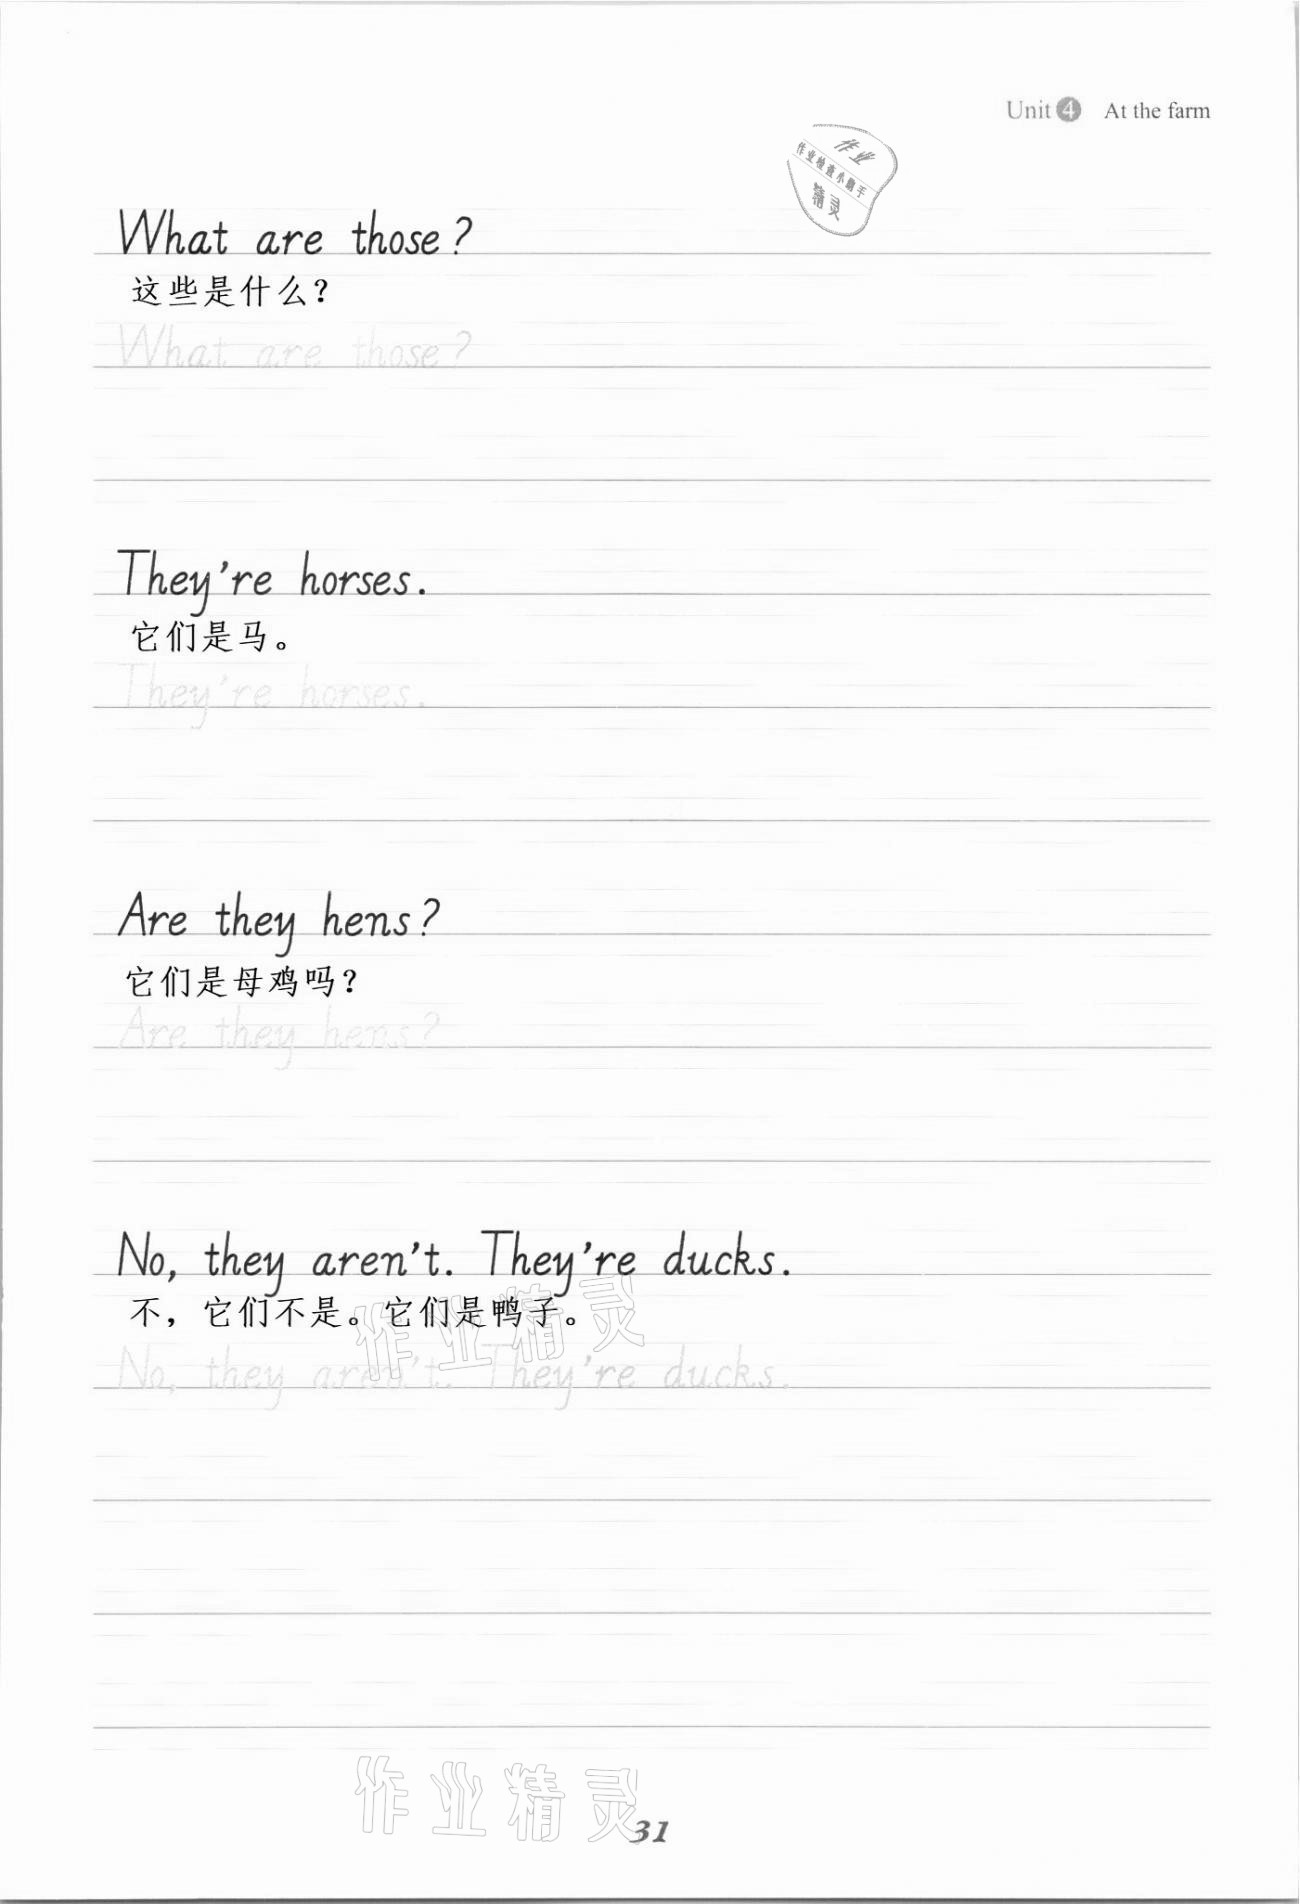 Unit 4 At the farm
作业
作业检查小助手
精灵
What are those?
这些是什么？
What are those?
They're horses.
它们是马。
They're horses.
Are they hens?
它们是母鸡吗？
Are they hens?
No, they aren't. They're ducks.
不，它们不是。它们是鸭子。
作业精灵
No, they aren't. They're ducks.
作业精灵
31